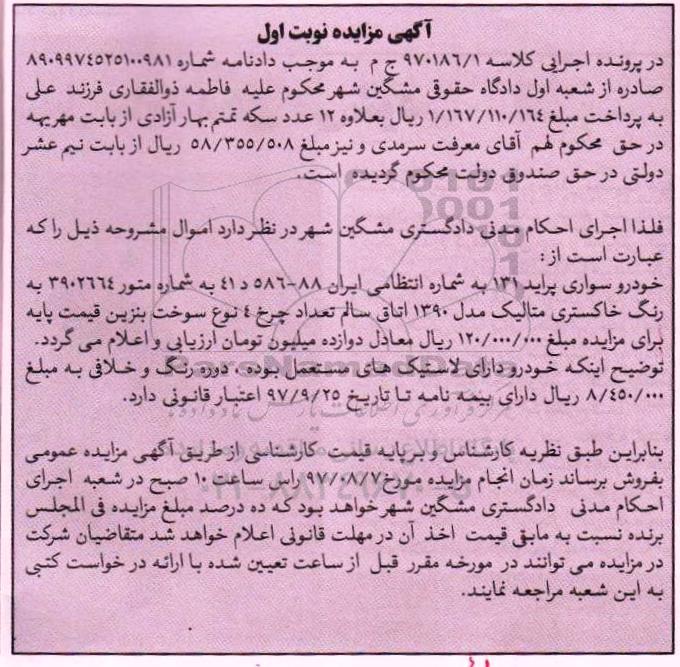 آگهی مزایده نوبت اول
در پرونده اجرایی کلاسه ۹۷۰۱۸۶/۱ ج م به موجب دادنامه شماره ۸۹۰۹۹۷۴۵۲۵۱۰۰۹۸۱
صادره از شعبه اول دادگاه حقوقی مشگین شهر محکوم علیه فاطمه ذوالفقاری فرزند علی
به پرداخت مبلغ ۱/۱۶۷/۱۱۰/۱۶۴ ریال بعلاوه ۱۲ عدد سکه تمتم بهار آزادی از بابت مهریه
در حق محکوم لهم آقای معرفت سرمدی و نیز مبلغ ۵۸/۳۵۵/۵۰۸ ریال از بابت نیم عشر
دولتی در حق صندوق دولت محکوم گردیده است.
فلذا اجرای احکام مدنی دادگستری مشگین شهر در نظر دارد اموال مشروحه ذیل را که
عبارت است از :
خودرو سواری پراید ۱۳۱ به شماره انتظامی ایران ۸۸-۵۸۶ د ۴۱ به شماره متور ۳۹۰۲۶۶۴ به
رنگ خاکستری متالیک مدل ۱۳۹۰ اتاق سالم تعداد چرخ ۴ نوع سوخت بنزین قیمت پایه
برای مزایده مبلغ ۱۲۰/۰۰۰/۰۰۰ ریال معادل دوازده میلیون تومان ارزیابی و اعلام می گردد.
توضیح اینکه خودرو دارای لاستیک های مستعمل بوده ، دوره رنگ و خلافی به مبلغ
۸/۴۵۰/۰۰۰ ریال دارای بیمه نامه تا تاریخ ۹۷/۹/۲۵ اعتبار قانونی دارد.
بنابراین طبق نظریه کارشناس و بر پایه قیمت کارشناسی از طریق آگهی مزایده عمومی
بفروش برساند زمان انجام مزایده مورخ ۹۷/۰۸/۷ راس ساعت ۱۰ صبح در شعبه اجرای
احکام مدنی دادگستری مشگین شهر خواهد بود که ده درصد مبلغ مزایده فی المجلس
برنده نسبت به مابقی قیمت اخذ آن در مهلت قانونی اعلام خواهد شد متقاضیان شرکت
در مزایده می توانند در مورخه مقرر قبل از ساعت تعیین شده با ارائه در خواست کتبی
به این شعبه مراجعه نمایند.
ParsNamadData